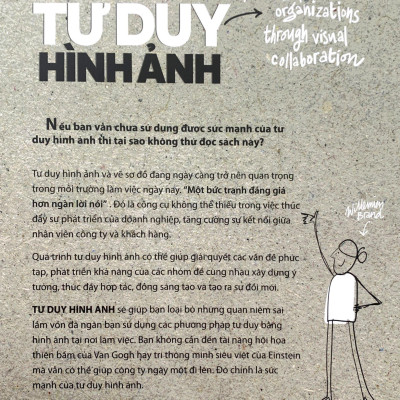 TƯ DUY
HÌNH ẢNH
organizations
through visual
collaboration
Nếu bạn vẫn chưa sử dụng được sức mạnh của tư
duy hình ảnh thì tại sao không thử đọc sách này?
Tư duy hình ảnh và vẽ sơ đồ đang ngày càng trở nên quan trọng
trong môi trường làm việc ngày nay. “Một bức tranh đáng giá
hơn ngàn lời nói” . Đó là công cụ không thể thiếu trong việc thúc
đẩy sự phát triển của doanh nghiệp, tăng cường sự kết nối giữa
nhân viên công ty và khách hàng.
Quá trình tư duy hình ảnh có thể giúp giải quyết các vấn đề phức
tạp, phát triển khả năng của các nhóm để cùng nhau xây dựng ý
tưởng, thúc đẩy hợp tác, đồng sáng tạo và tạo ra sự đổi mới.
TƯ DUY HÌNH ẢNH sẽ giúp bạn loại bỏ những quan niệm sai
lầm vốn đã ngăn bạn sử dụng các phương pháp tư duy bằng
hình ảnh tại nơi làm việc. Bạn không cần đến tài năng hội họa
thiên bẩm của Van Gogh hay trí thông minh siêu việt của Einstein
mà vẫn có thể giúp công ty ngày một đi lên. Đó chính là sức
mạnh của tư duy hình ảnh.
Willemien
Brand